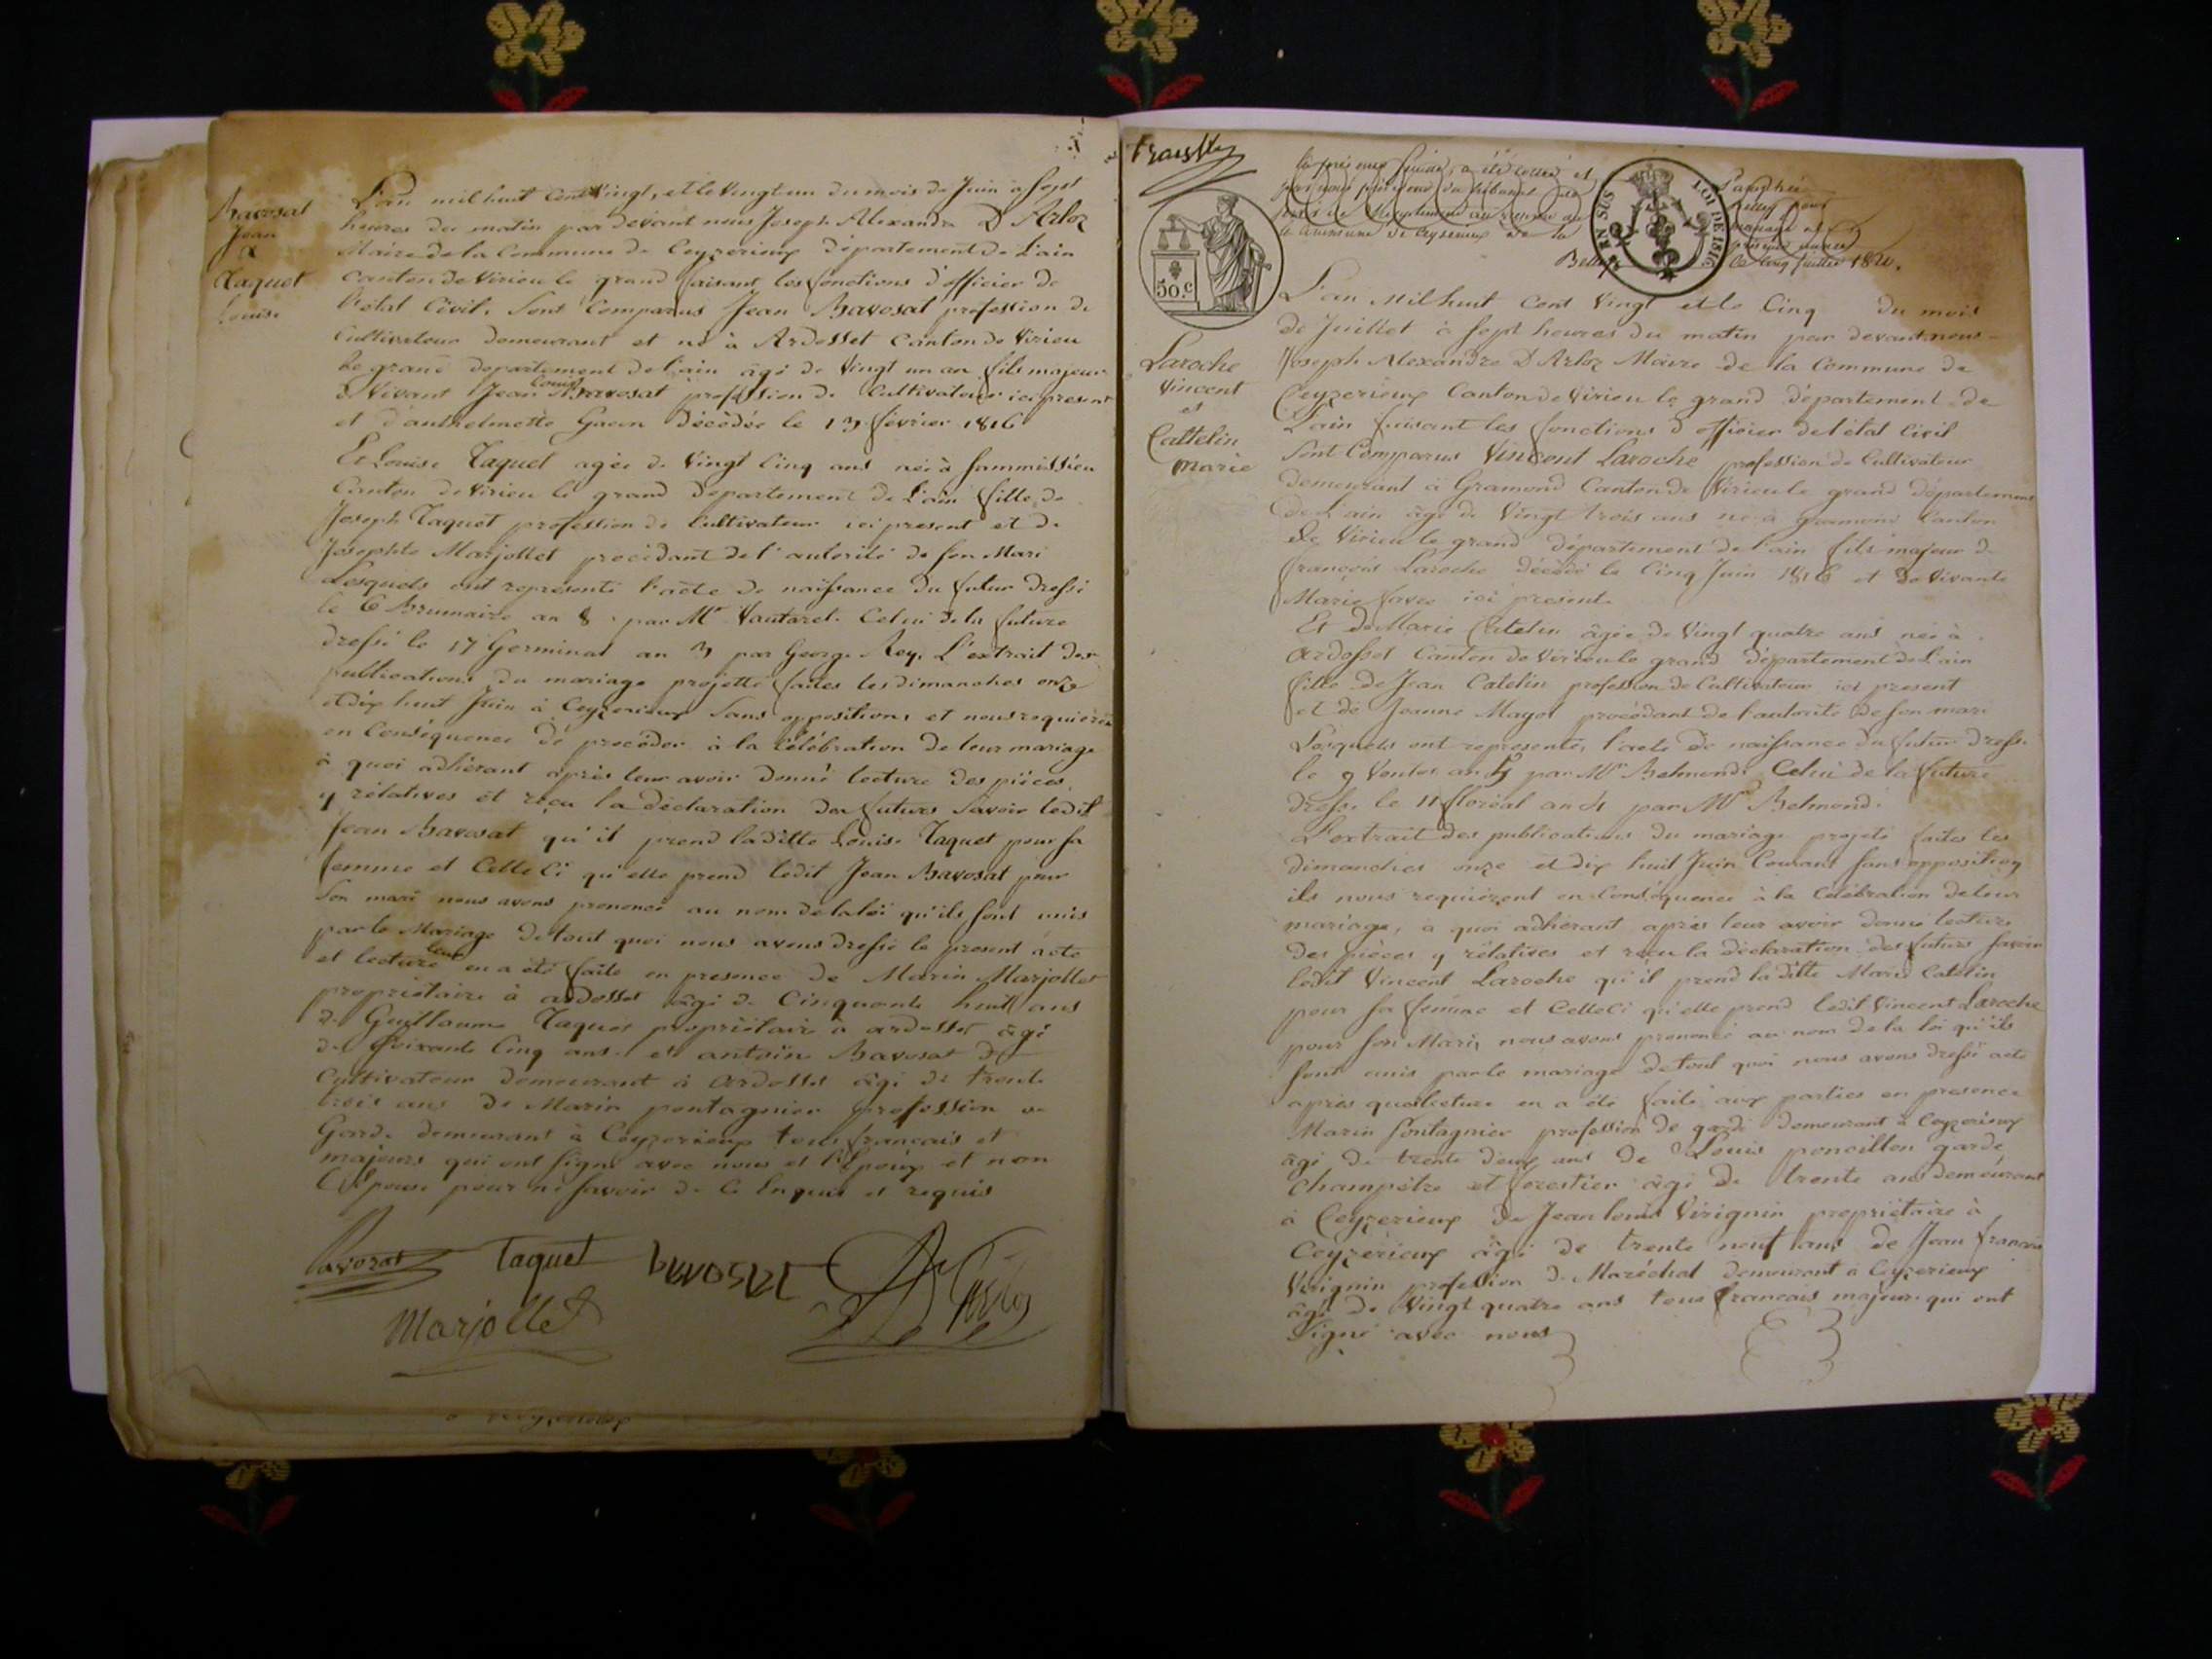 Bavosat
Jean
&
Taquet
Louise
L'an mil huit cent vingt, et le vingt un du mois de Juin à Sept
heures du matin par devant nous Joseph Alexandre D'Arloz
Maire de la Commune de Ceyzerieux département de L'ain
Canton de Virieu le grand faisant les fonctions d'officier de
l'état Civil. Sont Comparus Jean Bavosat profession de
Cultivateur demeurant et né à Ardosset Canton de Virieu
le grand département de l'ain âgé de Vingt un an fils majeur
de Vivant Jean Louis Bavosat profession de Cultivateur ici present
et d'anthelmette décédée le 13 février 1816
Et Louise Taquet agée de Vingt Cinq ans née à Sammissieu
Canton de Virieu le grand département de L'ain fille de
Joseph Taquet profession de Cultivateur ici present et de
Josephte Marjollet procédant de l'autorité de son Mari
Lesquels ont représenté l'acte de naissance du futur dressé
le 6 Brumaire an 8 par Mr Vautaret. Celui de la future
dressé le 17 Germinal an 3 par George Rey. L'extrait des
publications du mariage projetté faites les dimanches onze
et dix huit Juin à Ceyzerieux Sans opposition, et nous requièrent
en Conséquence de procéder à la Célébration de leur mariage
à quoi adhérant après leur avoir donné lecture des pièces
y rélatives et reçu la déclaration des futurs Savoir ledit
Jean Bavosat qu'il prend laditte Louise Taquet pour sa
femme et Celle Ci qu'elle prend ledit Jean Bavosat pour
Son mari nous avons prononcé au nom de la loi qu'ils sont unis
par le Mariage De tout quoi nous avons dressé le present acte
et lecture leur en a été faite en presence de Marin Marjollet
propriétaire à ardosset âgé de Cinquante huit ans
de Guillaume Taquet propriétaire à ardosset âgé
de Soixante Cinq ans. et antoine Bavosat
Cultivateur demeurant à Ardosset âgé de trente
trois ans de Marin pontagnier profession de
Garde demeurant à Ceyzerieux tous français et
majeurs qui ont Signé avec nous et l'Epoux et non
l'Epouse pour ne Savoir de Ce Enquis et requis
Bavozat Taquet BAVOSAT
Marjollet
feuillet
a été cotté et
président du tribunal
de Ceyzerieux
Belley
EN SUS
LOI DE 1816
Paraphé
Belley pour
mariage
Ce Cinq Juillet 1820.
50.c
Laroche
Vincent
et
Cattelin
Marie
L'an Mil huit Cent Vingt et le Cinq du mois
de Juillet à Sept heures du matin par devant nous
Joseph Alexandre D'Arloz Maire de la Commune de
Ceyzerieux Canton de Virieu le grand département de
L'ain faisant les fonctions d'officier de l'état Civil
Sont Comparus Vincent Laroche profession de Cultivateur
demeurant à Gramond Canton de Virieu le grand département
de L'ain âgé de Vingt trois ans né à gramond Canton
de Virieu le grand département de l'ain fils majeur de
françois Laroche décédé le Cinq Juin 1816 et de Vivante
Marie favre ici présente
Et de Marie Catelin âgée de Vingt quatre ans née à
ardosset Canton de Virieu le grand département de L'ain
fille de Jean Catelin profession de Cultivateur ici present
et de Jeanne Mayot procédant de l'autorité de son mari
Lesquels ont représenté, l'acte de naissance du futur dressé
le 9 Ventos an 5 par Mr Belmond. Celui de la future
dressé le 11 floréal an 4 par Mr Belmond.
L'extrait des publications du mariage projeté faites les
dimanches onze et dix huit Juin Courant Sans opposition
ils nous requièrent en Conséquence à la Célébration de leur
mariage, à quoi adhérant après leur avoir donné lecture
des pièces y rélatives et reçu la déclaration des futurs Savoir
ledit Vincent Laroche qu'il prend la ditte Marie Catelin
pour sa femme et Celle Ci qu'elle prend ledit Vincent Laroche
pour son Mari, nous avons prononcé au nom de la loi qu'ils
sont unis par le mariage de tout quoi nous avons dressé acte
après que lecture en a été faite aux parties en presence
Marin pontagnier profession de garde demeurant à Ceyzerieux
âgé de trente deux ans de Louis poncillon garde
Champêtre et forestier âgé de trente ans demeurant
à Ceyzerieux de Jean louis Virignin propriétaire à
Ceyzerieux âgé de trente neuf ans de Jean françois
Virignin profession de Maréchal demeurant à Ceyzerieux
âgé de Vingt quatre ans tous français majeurs qui ont
Signé avec nous